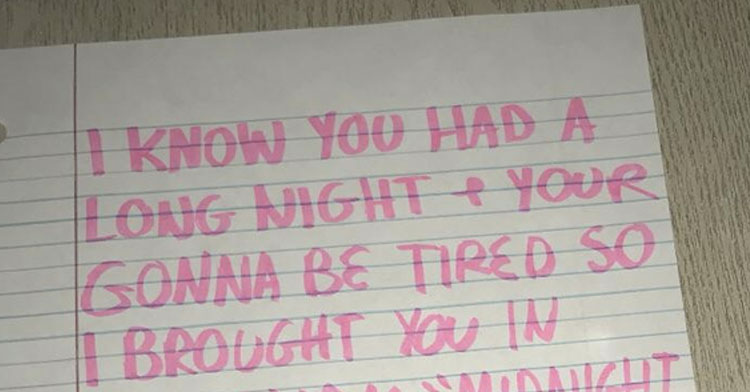 I KNOW YOU HAD A
LONG NIGHT + YOUR
GONNA BE TIRED SO
I BROUGHT YOU IN
"MIDNIGHT